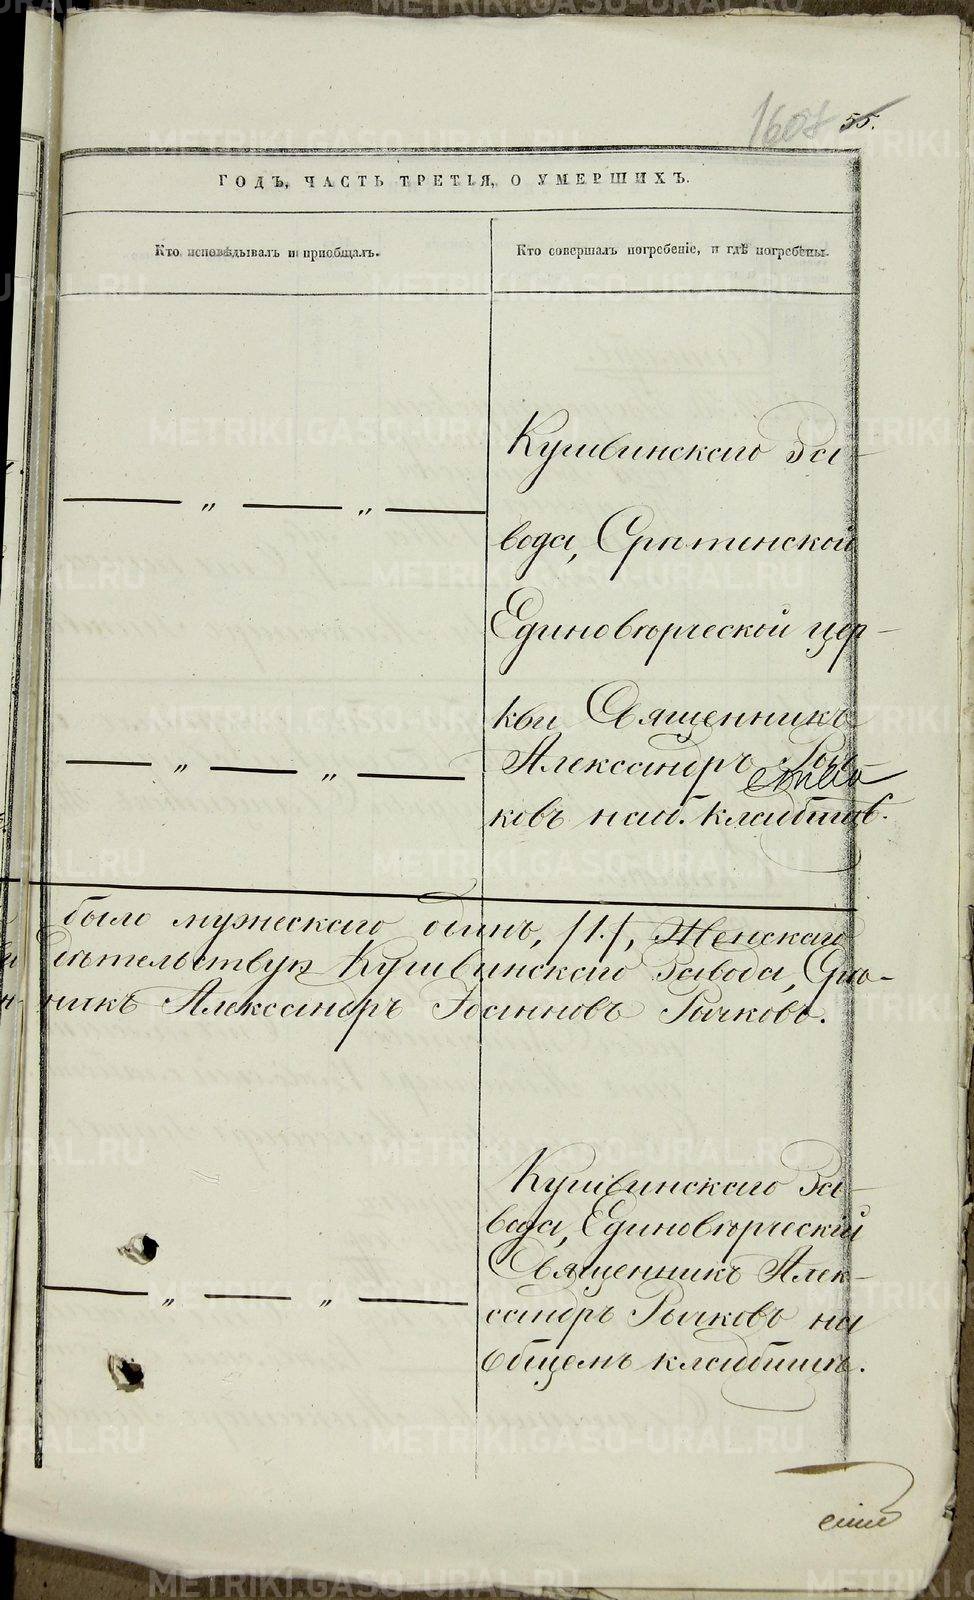 1608 55.
ГОДЪ, ЧАСТЬ ТРЕТІЯ, О УМЕРШИХЪ.
Кто исповѣдывалъ и пріобщалъ.
Кто совершалъ погребеніе, и гдѣ погребены.
Кушвинскаго За-
вода, Срѣтенской
Единовѣрческой цер-
кви Священникъ
Александръ Рыч-
ковъ на об. кладбищѣ.
было мужескаго одинъ, /1./, Женскаго
дѣтельствую Кушвинскаго Завода, Срѣ-
никъ Александръ Іоанновъ Рычковъ.
Кушвинскаго За-
вода, Единовѣрческій
Священникъ Алек-
сандръ Рычковъ на
общемъ кладбищѣ.
METRIKI.GASO-URAL.RU